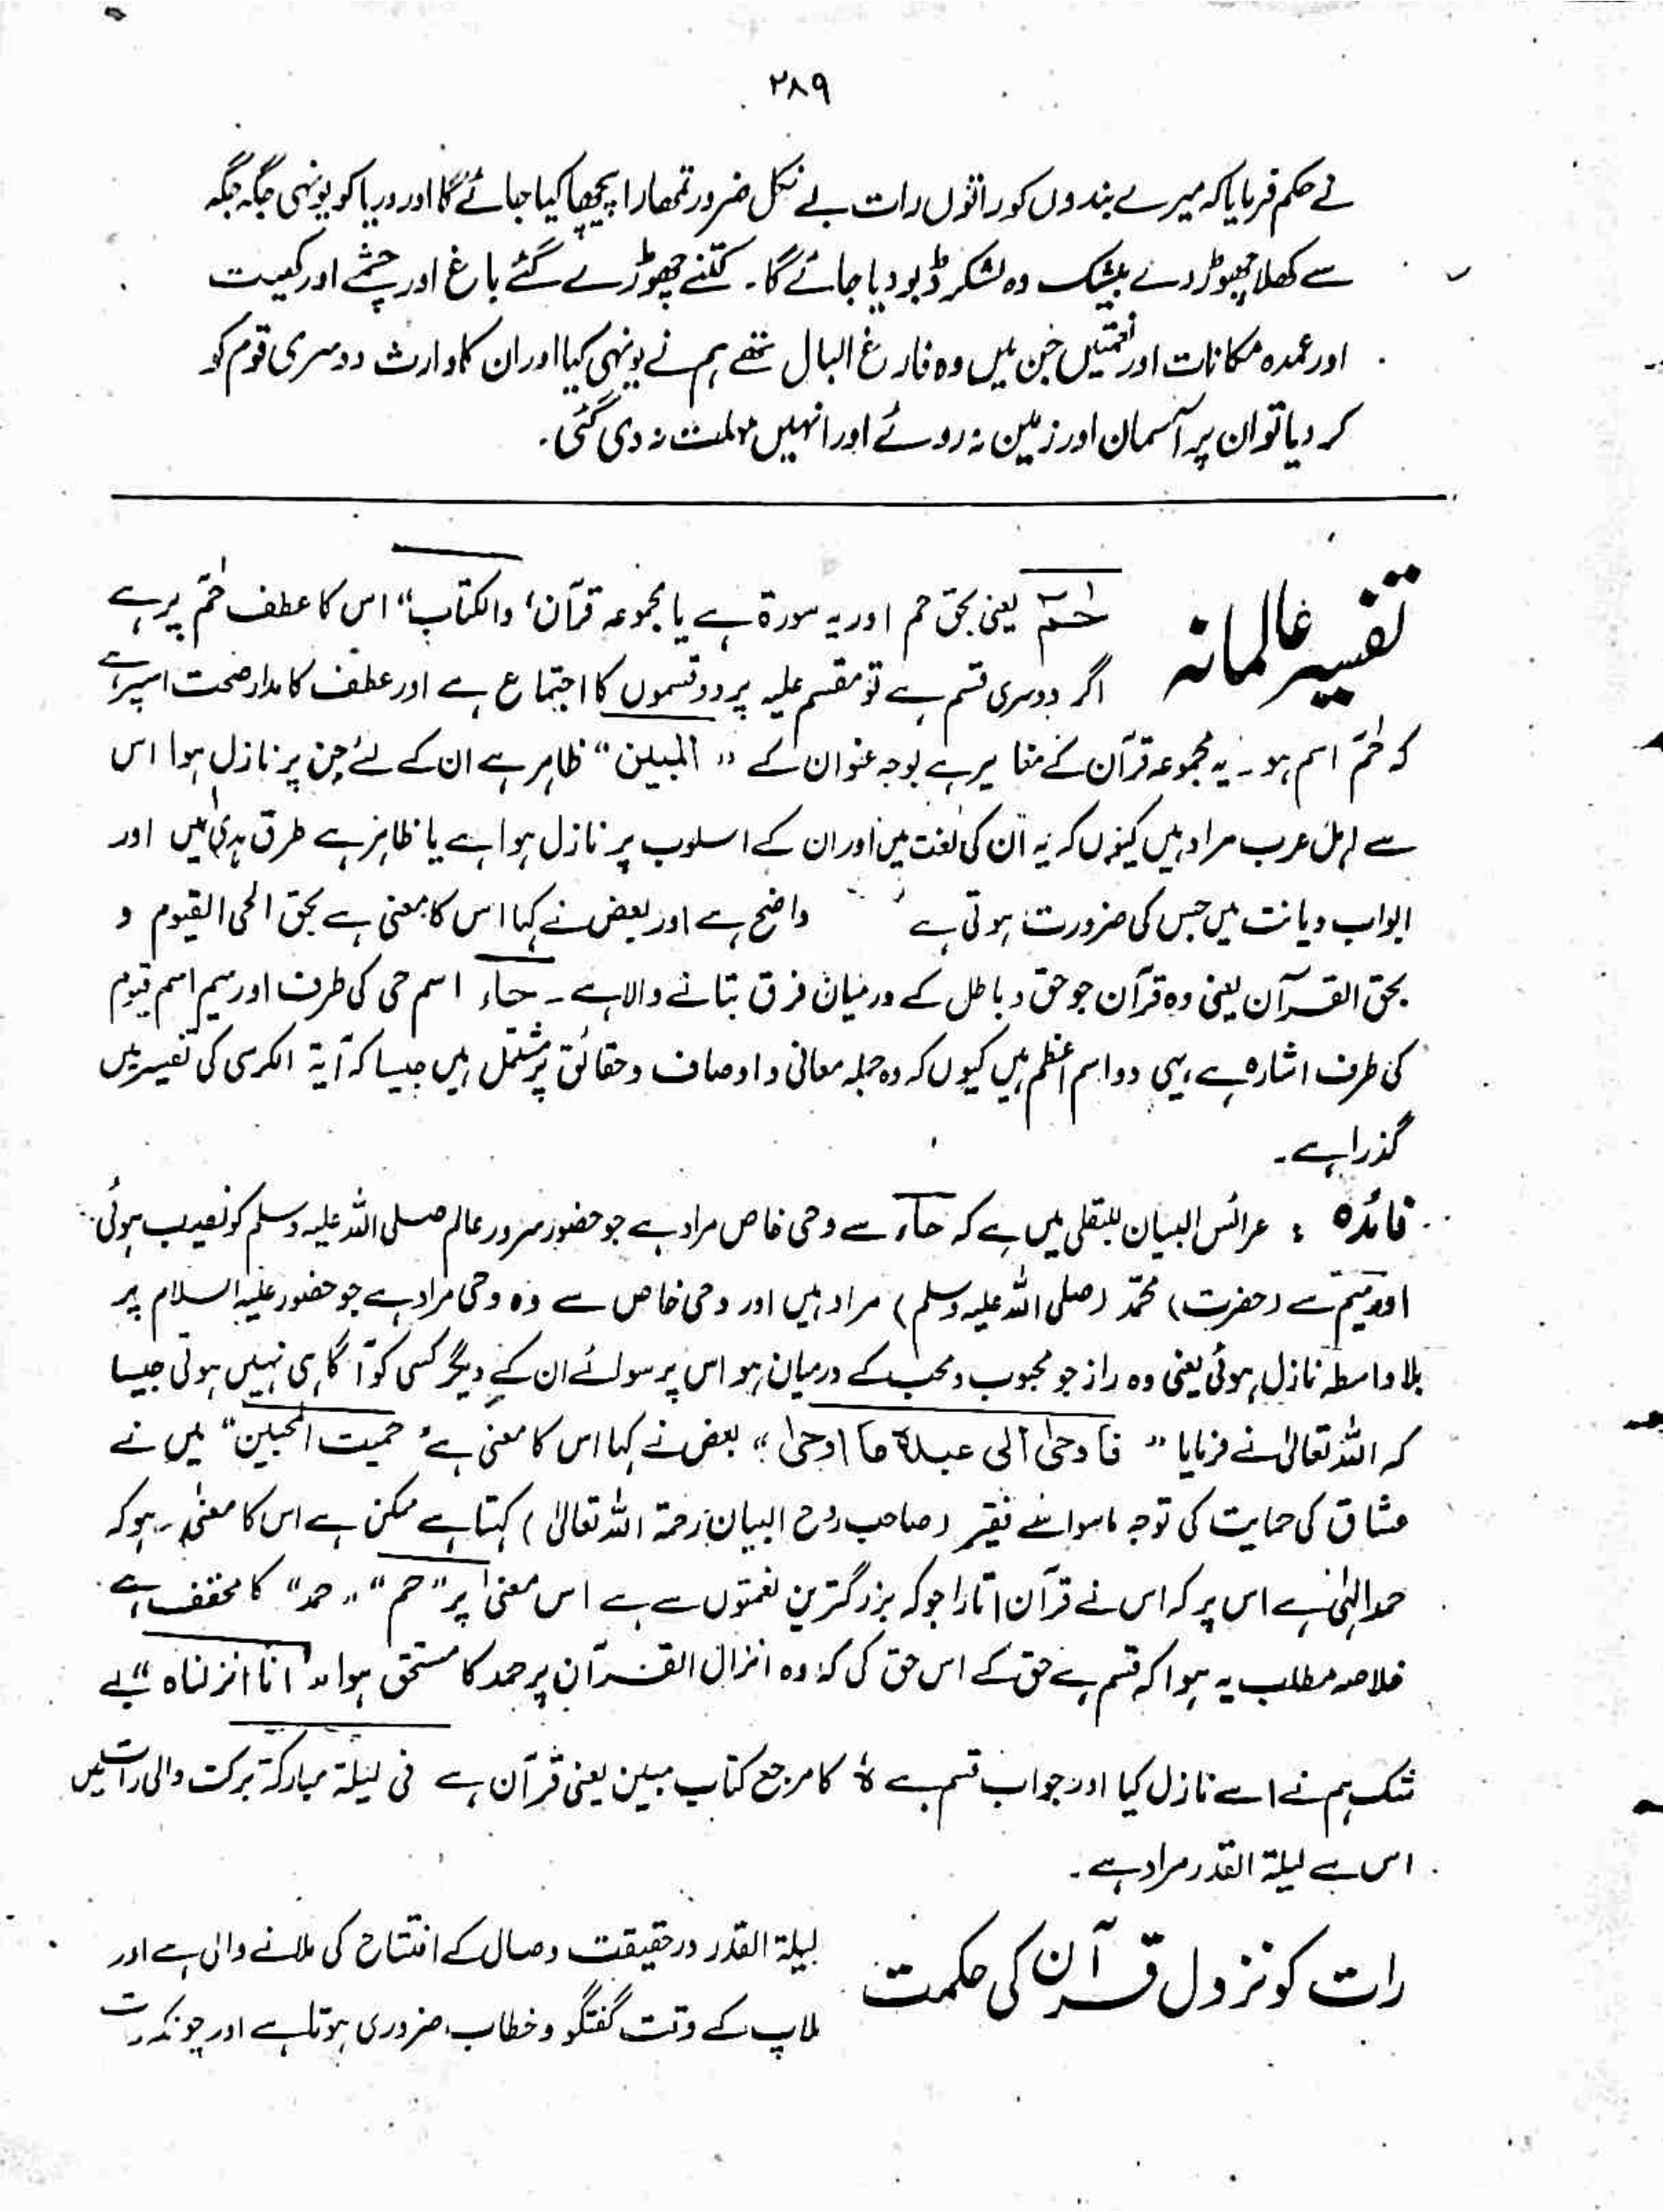 ۲۸۹
نے حکم فرمایا کہ میرے بندوں کو راتوں رات لے نکل ضرور تمھارا پیچھا کیا جائے گا اور دریا کو یونہی جگہ جگہ
سے کھلا چھوڑ دے بیشک وہ لشکر ڈبو دیا جائے گا۔ کتنے چھوڑے گئے باغ اور چشمے اور کھیت
اور عمدہ مکانات اور نعمتیں جن میں وہ فارغ البال تھے ہم نے یونہی کیا اور ان کا وارث دوسری قوم کو
کر دیا تو ان پر آسمان اور زمین نہ روئے اور انہیں مہلت نہ دی گئی۔
تفسیر عالمانہ
حٰمٓ یعنی بحق حم اور یہ سورۃ ہے یا مجموعہ قرآن، والکتاب" اس کا عطف حٰمٓ پر ہے
اگر دوسری قسم ہے تو مقسم علیہ پر دو قسموں کا اجتماع ہے اور عطف کا مدار صحت اسپر ہے
کہ حٰمٓ اسم ہو۔ یہ مجموعہ قرآن کے مغایر ہے بوجہ عنوان کے "المبین" ظاہر ہے ان کے لئے جن پر نازل ہوا اس
سے اہل عرب مراد ہیں کیوں کہ یہ ان کی لغت میں اور ان کے اسلوب پر نازل ہوا ہے یا ظاہر ہے طرق ہدیٰ میں اور
ابواب دیانت میں جس کی ضرورت ہوتی ہے واضح ہے اور بعض نے کہا اس کا معنی ہے بحق الحی القیوم و
بحق القرآن یعنی وہ قرآن جو حق و باطل کے درمیان فرق بتانے والا ہے ۔ حاء اسم حی کی طرف اور میم اسم قیوم
کی طرف اشارہ ہے، یہی دو اسم اعظم ہیں کیوں کہ وہ جملہ معانی و اوصاف و حقائق پر مشتمل ہیں جیسا کہ آیۃ الکرسی کی تفسیر میں
گذرا ہے۔
فائدہ : عرائس البیان للبقلی میں ہے کہ حاء سے وحی خاص مراد ہے جو حضور سرور عالم صلی اللہ علیہ وسلم کو نصیب ہوئی
اور میم سے (حضرت) محمّد (صلی اللہ علیہ وسلم) مراد ہیں اور وحی خاص سے وہ وحی مراد ہے جو حضور علیہ السلام پر
بلا واسطہ نازل ہوئی یعنی وہ راز جو محبوب و محب کے درمیان ہو اس پر سوائے ان کے دیگر کسی کو آگاہی نہیں ہوتی جیسا
کہ اللہ تعالیٰ نے فرمایا "فاَوحیٰ الی عبدہٖ ما اوحیٰ" بعض نے کہا اس کا معنی ہے "حمیت المحبین" میں نے
عشاق کی حمایت کی توجہ ماسوا سے فقیر (صاحب روح البیان رحمۃ اللہ تعالیٰ) کہتا ہے ممکن ہے اس کا معنیٰ ہو کہ
حمد الہٰی ہے اس پر کہ اس نے قرآن اتارا جو کہ بزرگترین نعمتوں سے ہے اس معنیٰ پر "حم" "حمد" کا مخفف ہے
خلاصہ مطلب یہ ہوا کہ قسم ہے حق کے اس حق کی کہ وہ انزال القرآن پر حمد کا مستحق ہوا "انا انزلناہ" بے
شک ہم نے اسے نازل کیا اور جواب قسم ہے ہٗ کا مرجع کتاب مبین یعنی قرآن ہے فی لیلۃ مبارکۃ برکت والی رات میں
اس سے لیلۃ القدر مراد ہے۔
رات کو نزول قرآن کی حکمت
لیلۃ القدر درحقیقت وصال کے افتتاح کی ملانے والی ہے اور
ملاپ کے وقت گفتگو و خطاب ضروری ہوتا ہے اور چونکہ